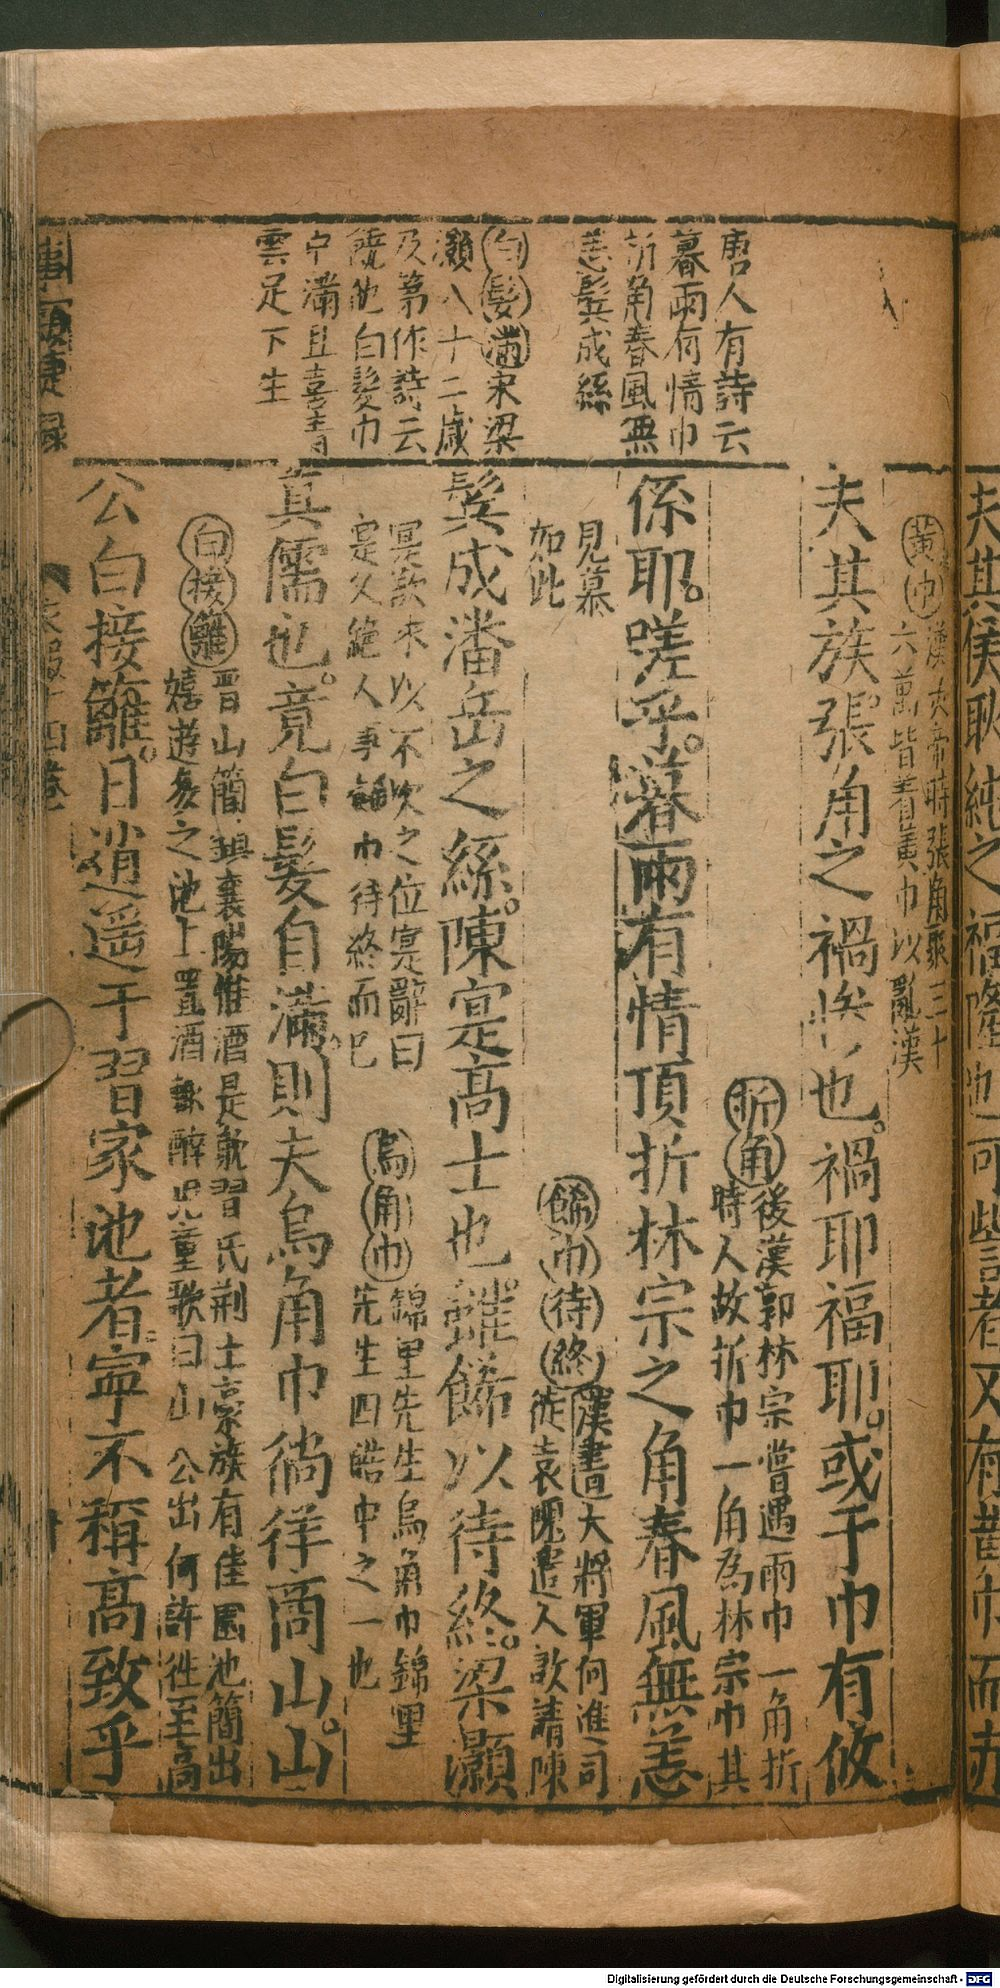 唐人有詩云
暮雨有情巾
折角春風無
恙鬂成絲
白髮滿宋梁
灝八十二歲
及第作詩云
饒他白髮巾
中滿且喜青
雲足下生
夫其侯耿純之福隆也可訾者又有黃巾而赤
黃巾漢大帝時張角聚三十
六萬皆着黃巾以亂漢
夫其族張角之禍恢也禍耶福耶或于巾有攸
折角後漢郭林宗嘗遇雨巾一角折
時人故折巾一角為林宗巾其
見慕
如此
係耶嗟乎暮雨有情頂折林宗之角春風無恙
餙巾待終漢書大將軍何進司
徒袁隗遣人敦請陳
寔欲來以不次之位寔辭曰
寔久絕人事餙巾待終而巳
鬂成潘岳之絲陳寔高士也雖餙以待終梁灝
烏角巾錦里先生烏角巾錦里
先生四皓中之一也
真儒也竟白髮自滿則夫烏角巾徜徉商山山
白接籬晋山簡鎮襄陽惟酒是躭習氏荆土豪族有佳園池簡出
嬉遊多之池上置酒輙醉兒童歌曰山公出何許徃至高
公白接籬日逍遥于習家池者寜不稱高致乎
衣服十四卷
Digitalisierung gefördert durch die Deutsche Forschungsgemeinschaft - DFG